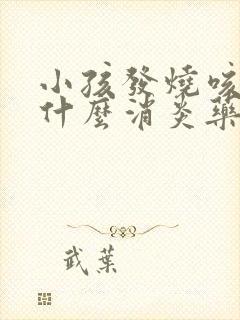 小孩發燒咳
什麼消炎藥
武葉